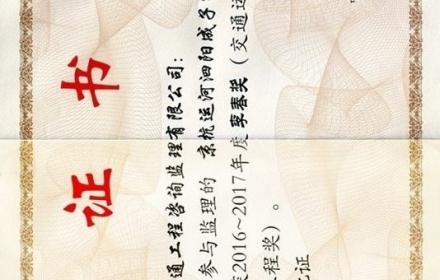 证书
通工程咨询监理有限公司：
参与监理的 京杭运河泗阳成子
2016~2017年度李春奖（交通运
程奖）。
证